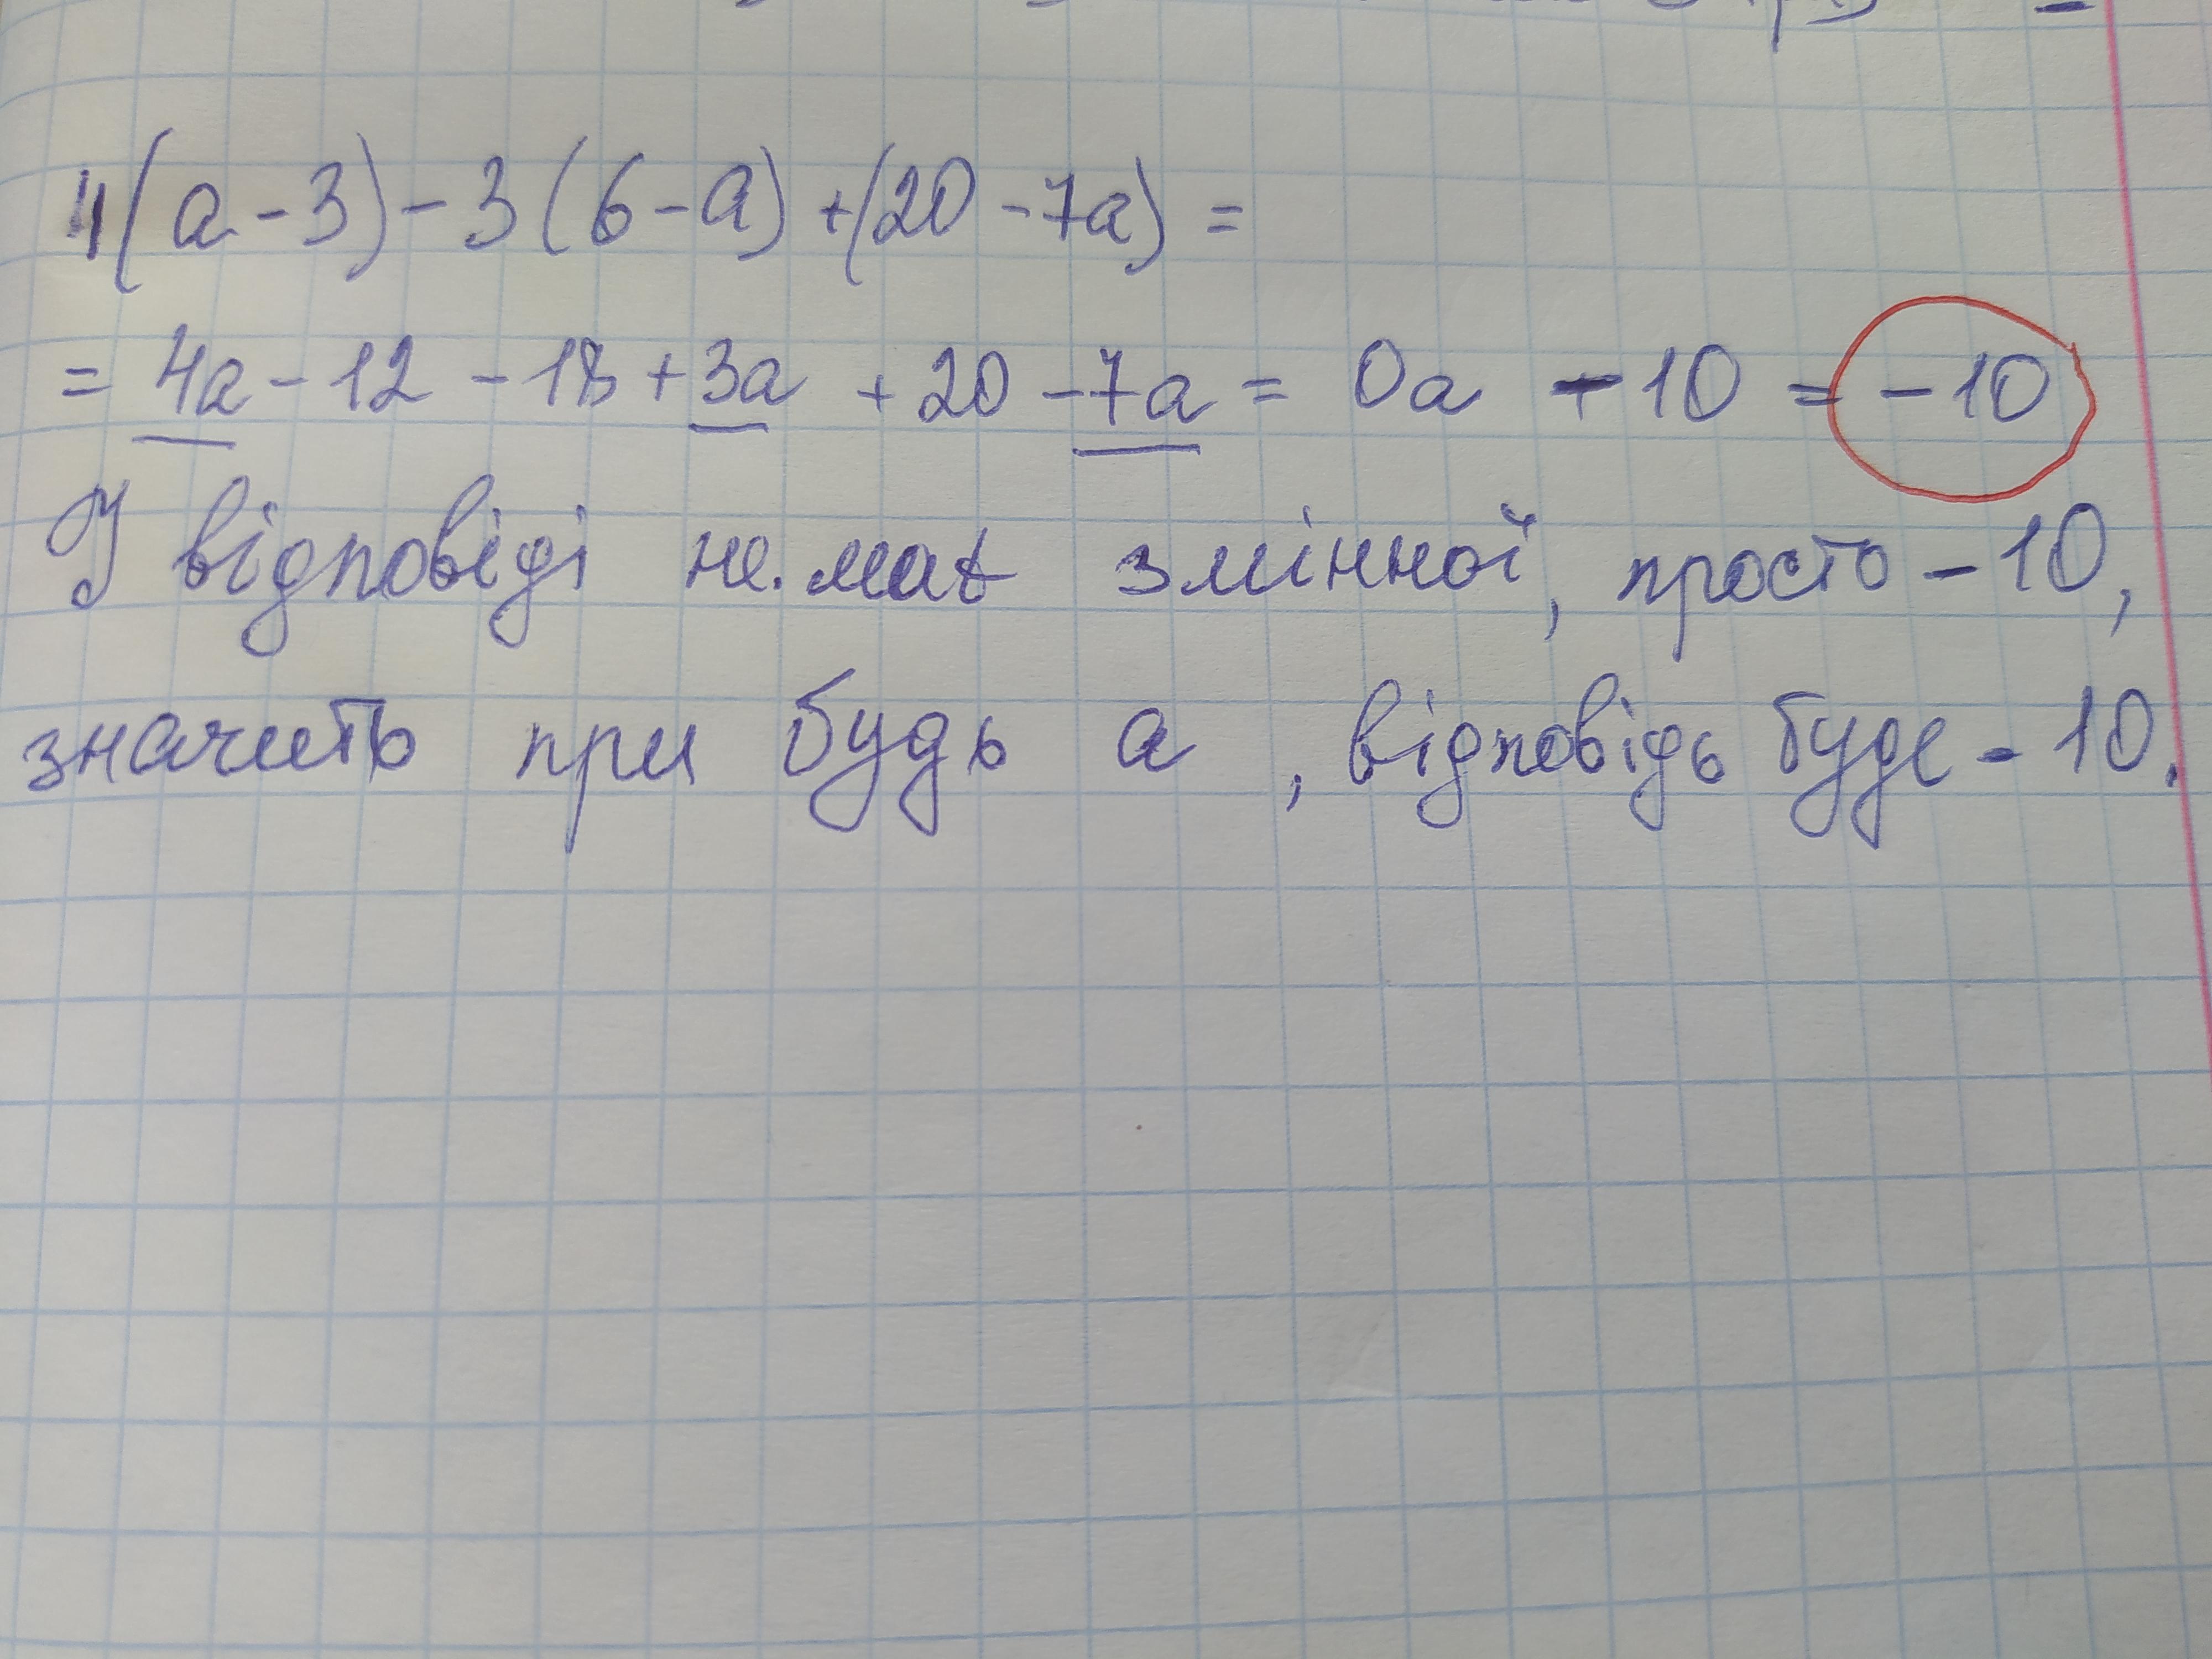 4(a-3)-3(6-a)+(20-7a)=
=4a-12-18+3a+20-7a=0a-10=-10
У відповіді не має змінної, просто -10,
значить при будь а, відповідь буде -10.